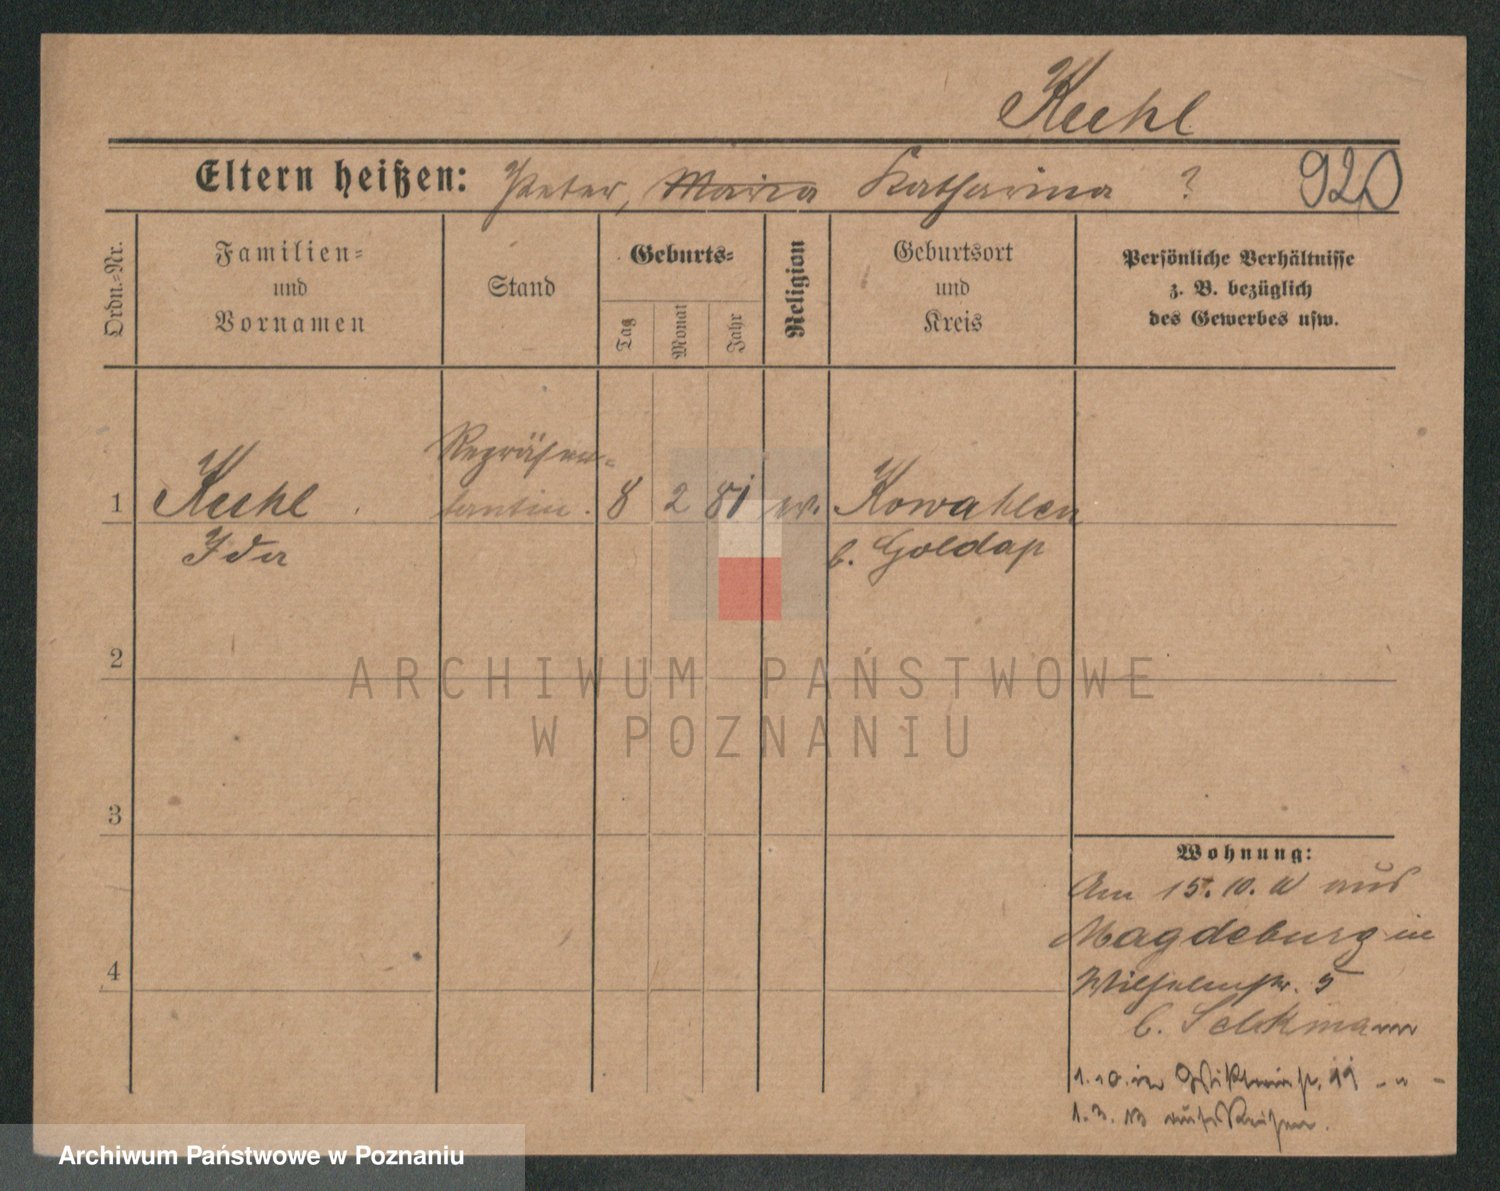 Kuhl
Eltern heißen: Peter, Maria Katharina ?
920
Ordn.-Nr.
Familien-
und
Vornamen
Stand
Geburts-
Tag
Monat
Jahr
Religion
Geburtsort
und
Kreis
Persönliche Verhältnisse
z. B. bezüglich
des Gewerbes usw.
Repräsen-
1 Kuhl tantin. 8 2 81 ev. Kowahlen
Ida b. Goldap
2
3
4
ARCHIWUM PAŃSTWOWE
W POZNANIU
Wohnung:
Am 15. 10. aus
Magdeburg in
Wilhelmstr. 5
b. Selkmann
1. 10. in 
1. 3. 13 auf Reisen.
Archiwum Państwowe w Poznaniu